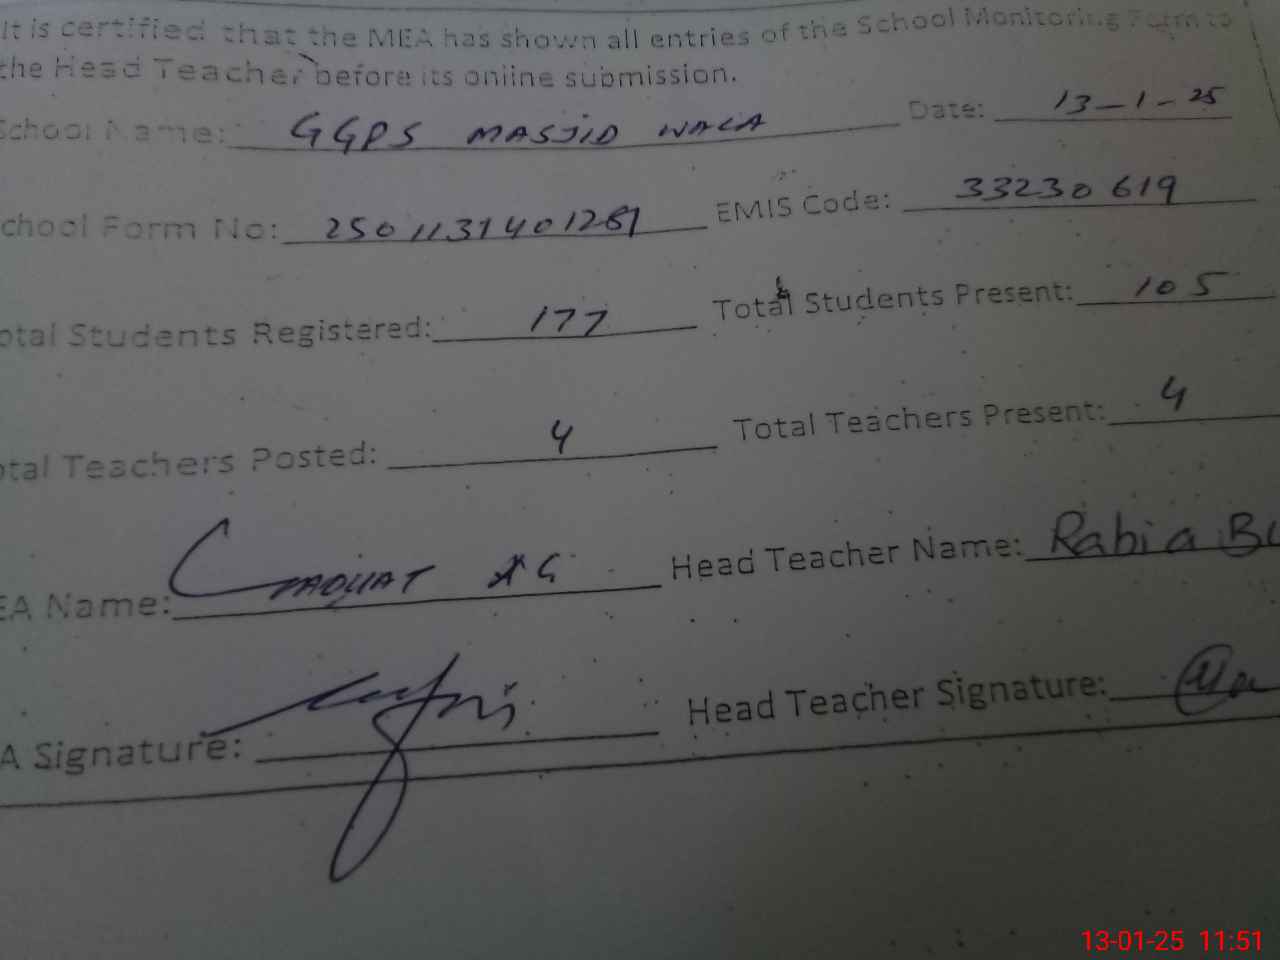 It is certified that the MEA has shown all entries of the School Monitoring Form to
the Head Teacher before its online submission.
School Name: GGPS MASJID WALA Date: 13-1-25
chool Form No: EMIS Code: 33230619
otal Students Registered: 177 Total Students Present: 105
otal Teachers Posted: 4 Total Teachers Present: 4
EA Name: Head Teacher Name: Rabia
A Signature: Head Teacher Signature:
13-01-25 11:51